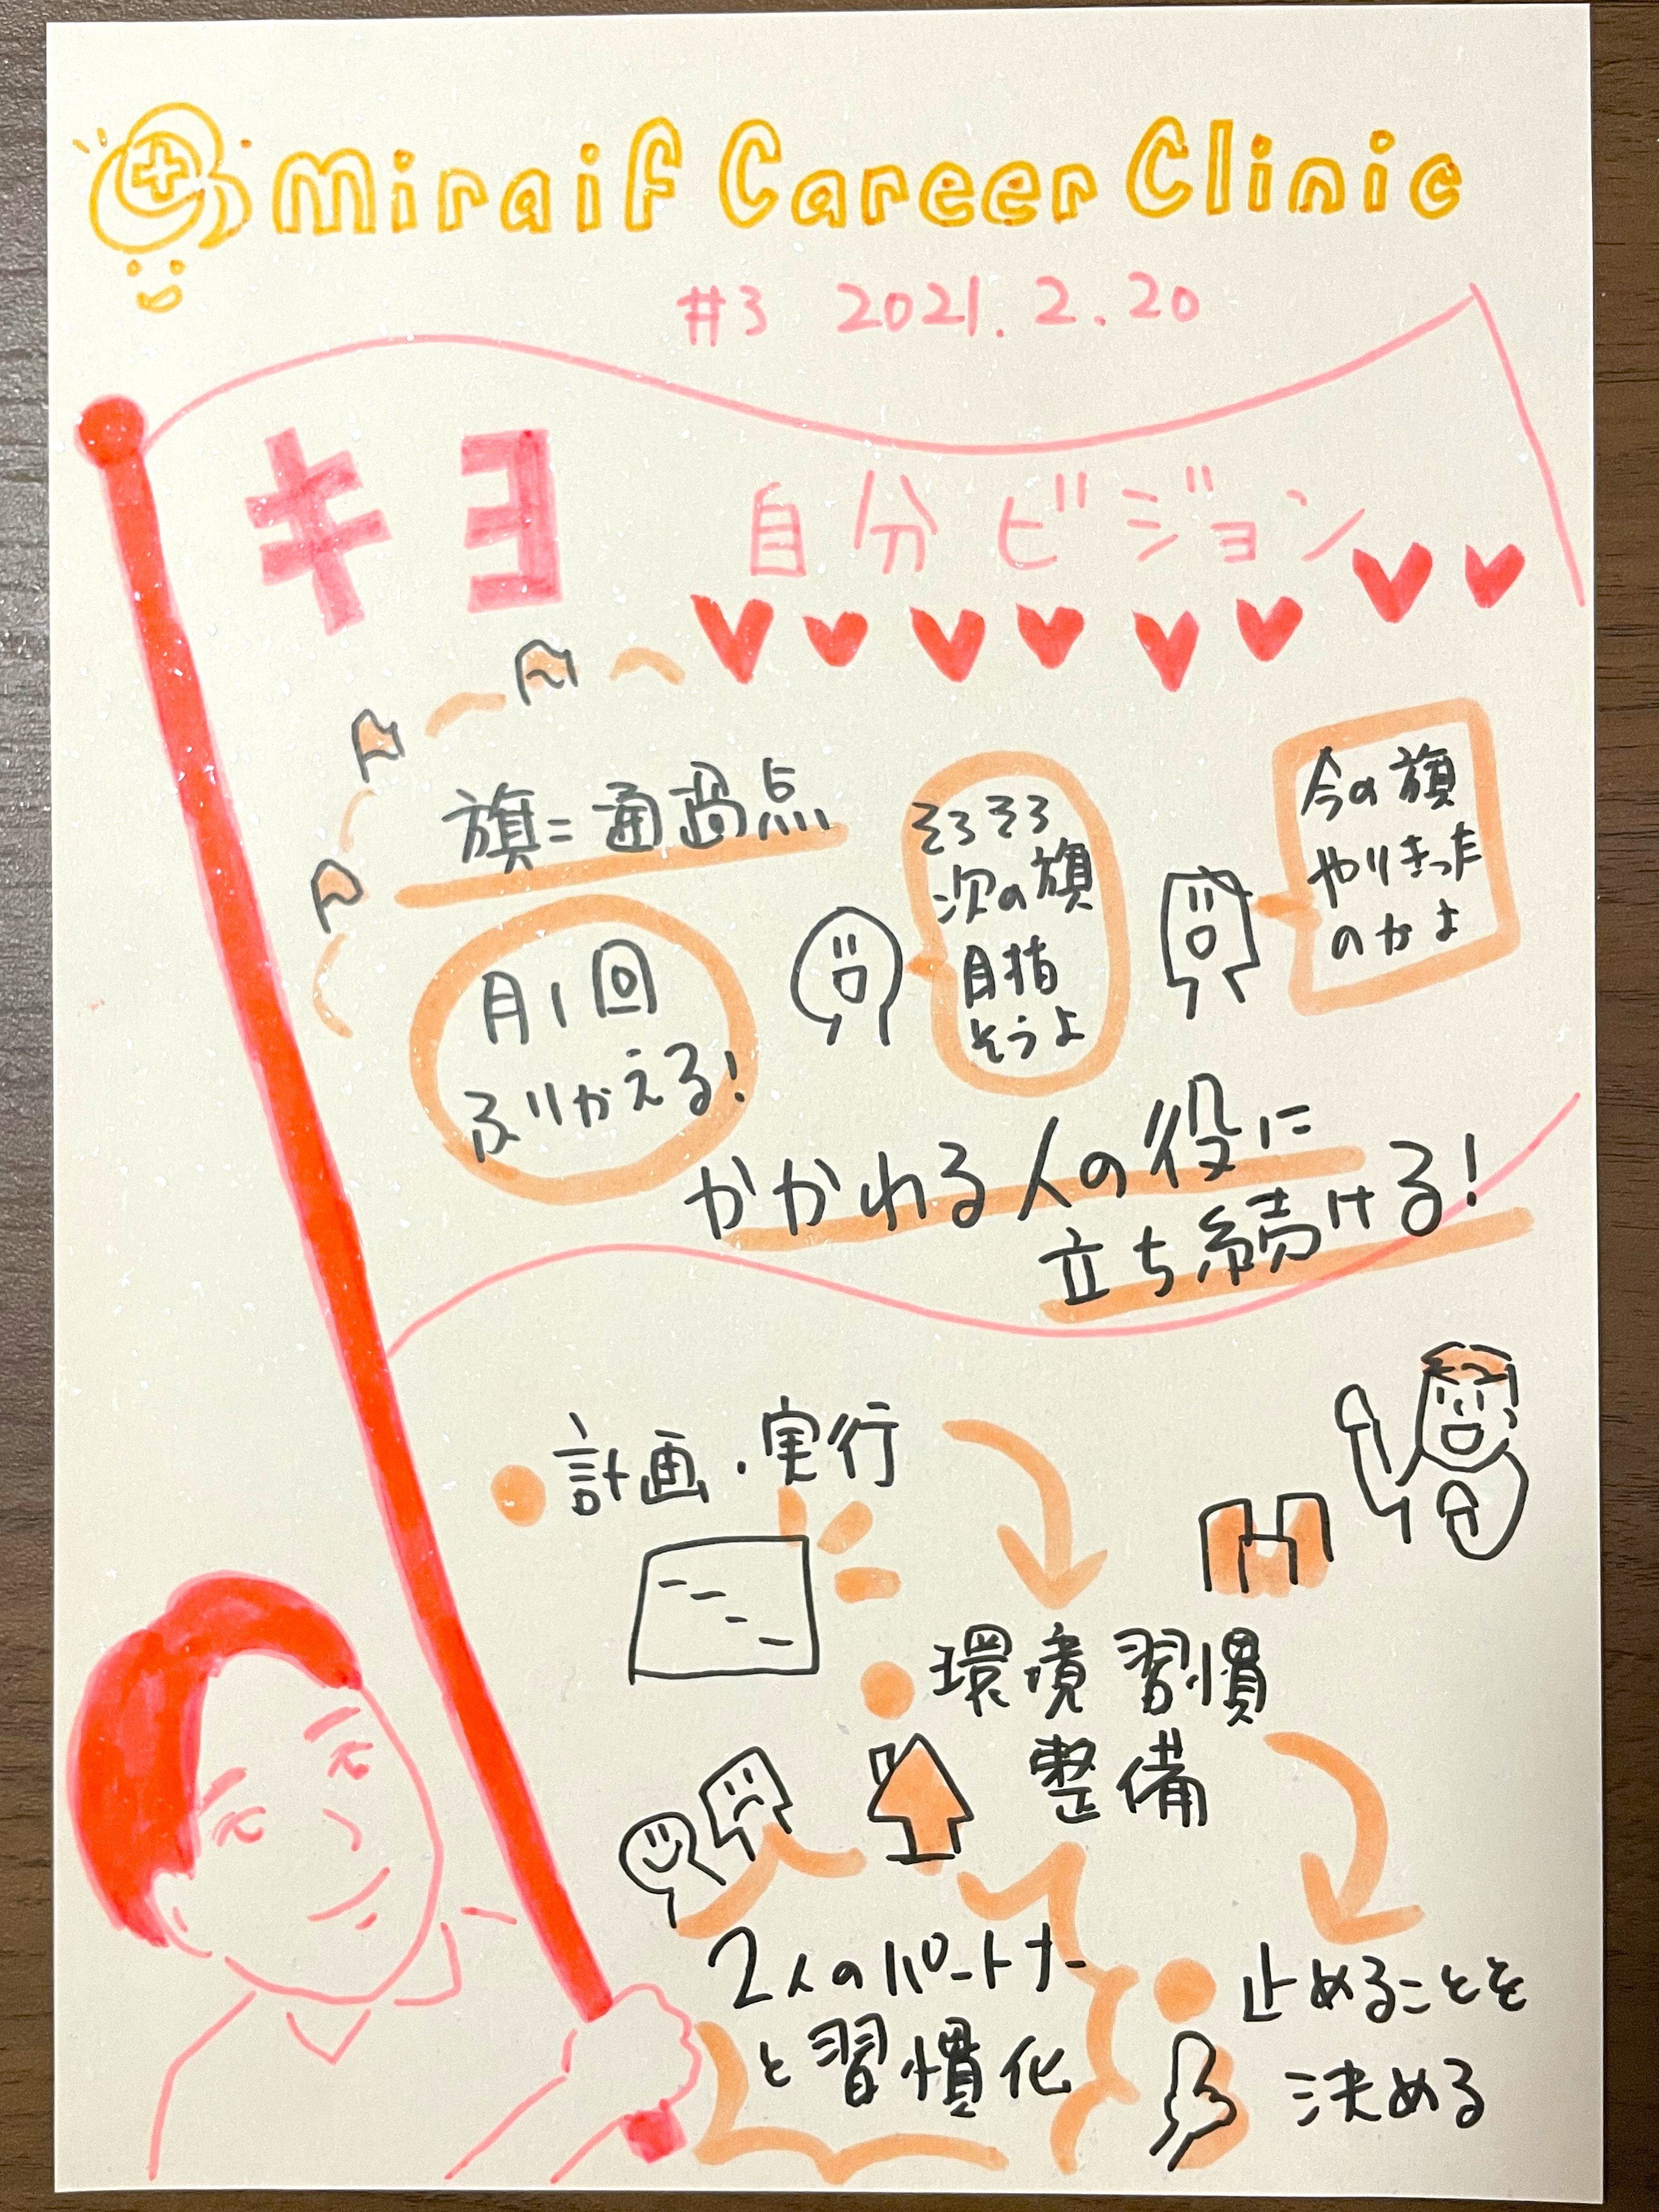 Miraif Career Clinic
#3 2021.2.20
キヨ
自分ビジョン
旗=通過点
月1回
ふりかえる!
そろそろ
次の旗
目指
そうよ
今の旗
やりきった
のかよ
かかわる人の役に
立ち続ける!
計画・実行
環境習慣
整備
2人のパートナー
と習慣化
止めることを
決める